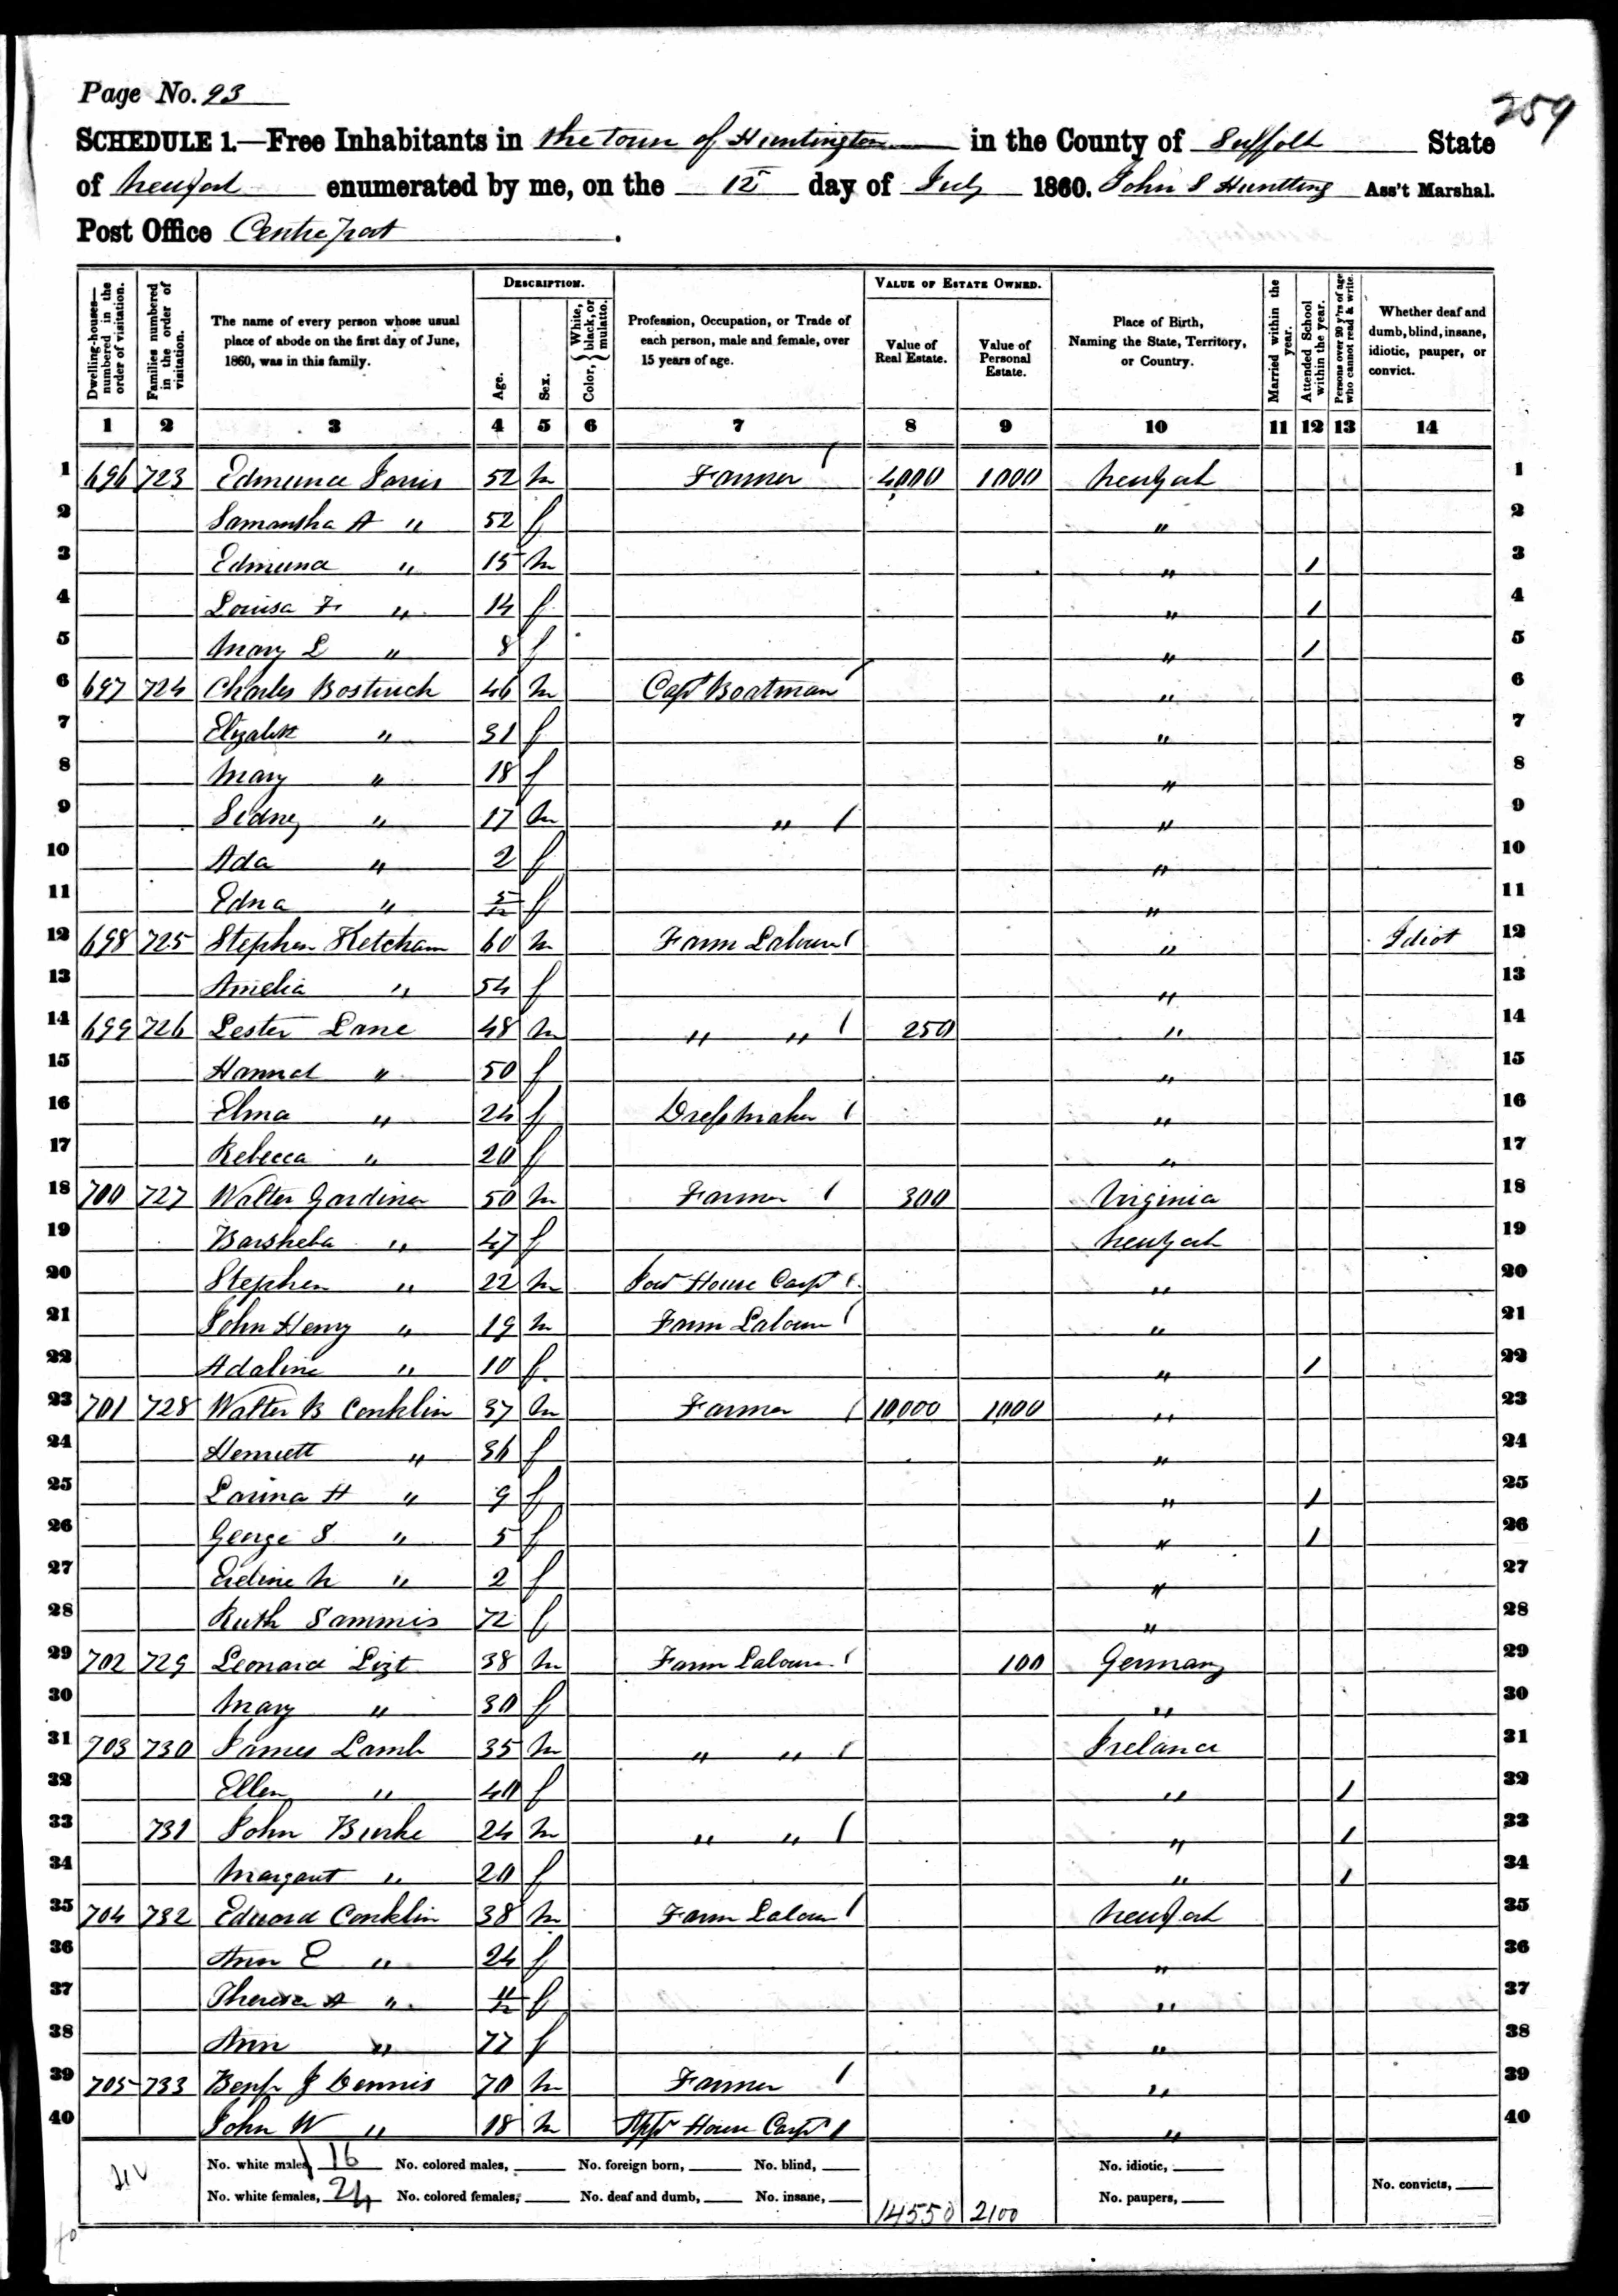 Page No. 93
259
SCHEDULE 1.—Free Inhabitants in the town of Huntington in the County of Suffolk State
of New York enumerated by me, on the 12 day of July 1860. John S Huntting Ass't Marshal.
Post Office Centreport.
Dwelling-houses—numbered in the order of visitation.
Families numbered in the order of visitation.
The name of every person whose usual place of abode on the first day of June, 1860, was in this family.
DESCRIPTION.
Age.
Sex.
Color, { White, black, or mulatto.
Profession, Occupation, or Trade of each person, male and female, over 15 years of age.
VALUE OF ESTATE OWNED.
Value of Real Estate.
Value of Personal Estate.
Place of Birth, Naming the State, Territory, or Country.
Married within the year.
Attended School within the year.
Persons over 20 y'rs of age who cannot read & write.
Whether deaf and dumb, blind, insane, idiotic, pauper, or convict.
1 2 3 4 5 6 7 8 9 10 11 12 13 14
1 696 723 Edmund Jarvis 52 m Farmer / 4,000 1000 New York 1
2 Samantha A " 52 f " 2
3 Edmund " 15 m " 1 3
4 Louisa F " 14 f " 1 4
5 Mary L " 8 f " 1 5
6 697 724 Charles Bostwick 46 m Capt Boatman / " 6
7 Elizabeth " 31 f " 7
8 Mary " 18 f " 8
9 Sidney " 17 m " / " 9
10 Ada " 2 f " 10
11 Edna " 5/12 f " 11
12 698 725 Stephen Ketcham 60 m Farm Labour / " Idiot 12
13 Amelia " 54 f " 13
14 699 726 Lester Lane 48 m " " / 250 " 14
15 Hannah " 50 f " 15
16 Elma " 24 f Dressmaker / " 16
17 Rebecca " 20 f " 17
18 700 727 Walter Gardiner 50 m Farmer / 300 Virginia 18
19 Barsheba " 47 f New York 19
20 Stephen " 22 m Jour House Carpt / " 20
21 John Henry " 19 m Farm Labour / " 21
22 Adaline " 10 f " 1 22
23 701 728 Walter B Conklin 37 m Farmer / 10,000 1,000 " 23
24 Henriett " 36 f " 24
25 Lavina H " 9 f " 1 25
26 George S " 5 f " 1 26
27 " 2 f " 27
28 Ruth Sammis 72 f " 28
29 702 729 Leonard Lizt 38 m Farm Labour / 100 Germany 29
30 Mary " 30 f " 30
31 703 730 James Lamb 35 m " " / Ireland 31
32 Ellen " 40 f " 1 32
33 731 John Burke 24 m " " / " 1 33
34 Margaret " 20 f " 1 34
35 704 732 Edward Conklin 38 m Farm Labour / New York 35
36 Ann E " 24 f " 36
37 Theresa A " 11/12 f " 37
38 Ann " 77 f " 38
39 705 733 Benjn J Dennis 70 m Farmer / " 39
40 John W " 18 m App House Carpt / " 40
No. white males, 16 No. colored males, No. foreign born, No. blind, No. idiotic,
No. white females, 24 No. colored females, No. deaf and dumb, No. insane, 14550 2100 No. paupers, No. convicts,